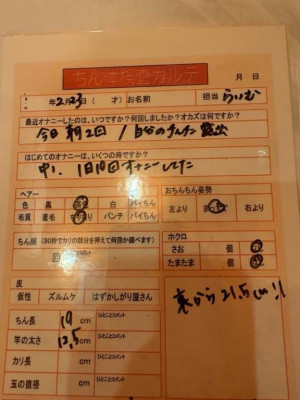 ちん性検査カルテ
月 日
年2月23 ( 才) お名前 担当 らいむ
最近オナニーしたのは、いつですか？何回しましたか？オカズは何ですか？
今日 朝2回 / 自分の 露出
はじめてのオナニーは、いくつの時ですか？
中1. 1日10回オナニーしてた
ヘアー おちんちん姿勢
色 黒 白 パイちん 左より 右より
毛質 直毛 パンチ パイちん
ちん脈 (30秒でカリの部分を押えて何回か調べます) ホクロ
回 さお 個
たまたま 個
皮
仮性 ズルムケ はずかしがり屋さん
ちん長 19 cm ひとことコメント
竿の太さ 12,5 cm ひとことコメント
カリ長 cm ひとことコメント
玉の直径 cm ひとことコメント
裏から21.5cm!!